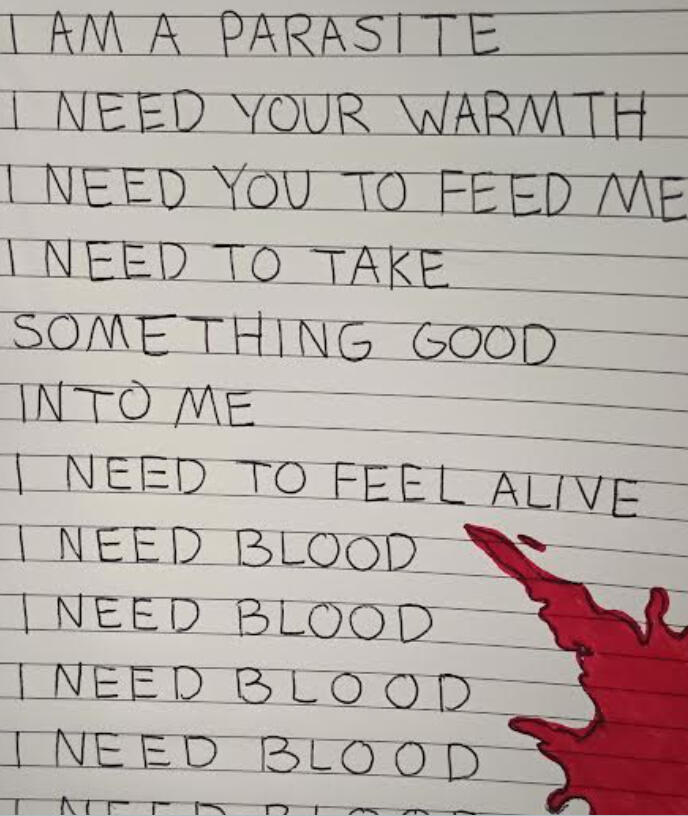 I AM A PARASITE
I NEED YOUR WARMTH
I NEED YOU TO FEED ME
I NEED TO TAKE
SOMETHING GOOD
INTO ME
I NEED TO FEEL ALIVE
I NEED BLOOD
I NEED BLOOD
I NEED BLOOD
I NEED BLOOD
I NEED BLOOD